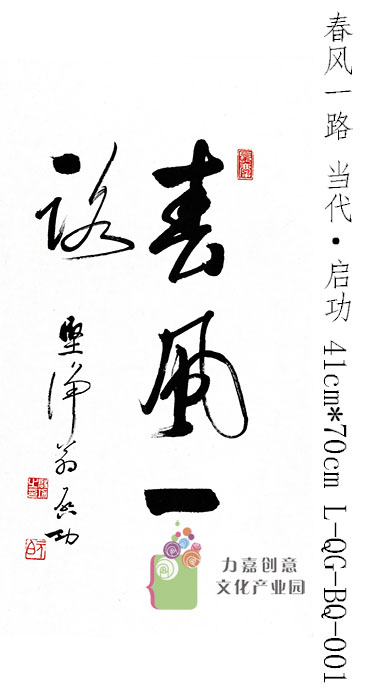 春风一路 当代·启功 41cm*70cm L-QG-BQ-001
春風一
路
坚净翁启功
力嘉创意
文化产业园